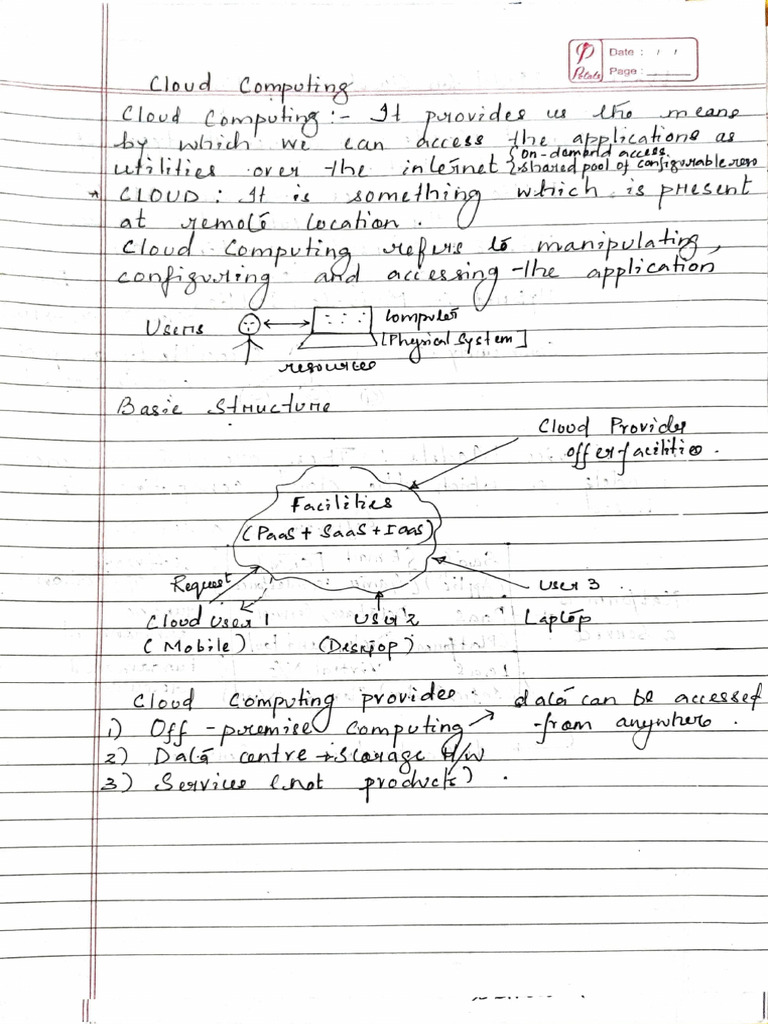 Date : / /
Petals Page :
Cloud Computing
Cloud Computing :- It provides us the means
by which we can access the applications as
utilities over the internet { on-demand access,
shared pool of configurable
* CLOUD : It is something which is present
at remote location .
Cloud Computing refers to manipulating,
configuring and accessing the application
Users
Computer
[Physical System] .
resources
Basic Structure
Cloud Provider
offer facilities .
Facilities
(PaaS + SaaS + IaaS)
Request
Cloud User 1 User 2 User 3
(Mobile) (Desktop) Laptop
Cloud Computing provides
1) Off - premise computing → data can be accessed
from anywhere .
2) Data centre → storage H/W
3) Services (not products) .